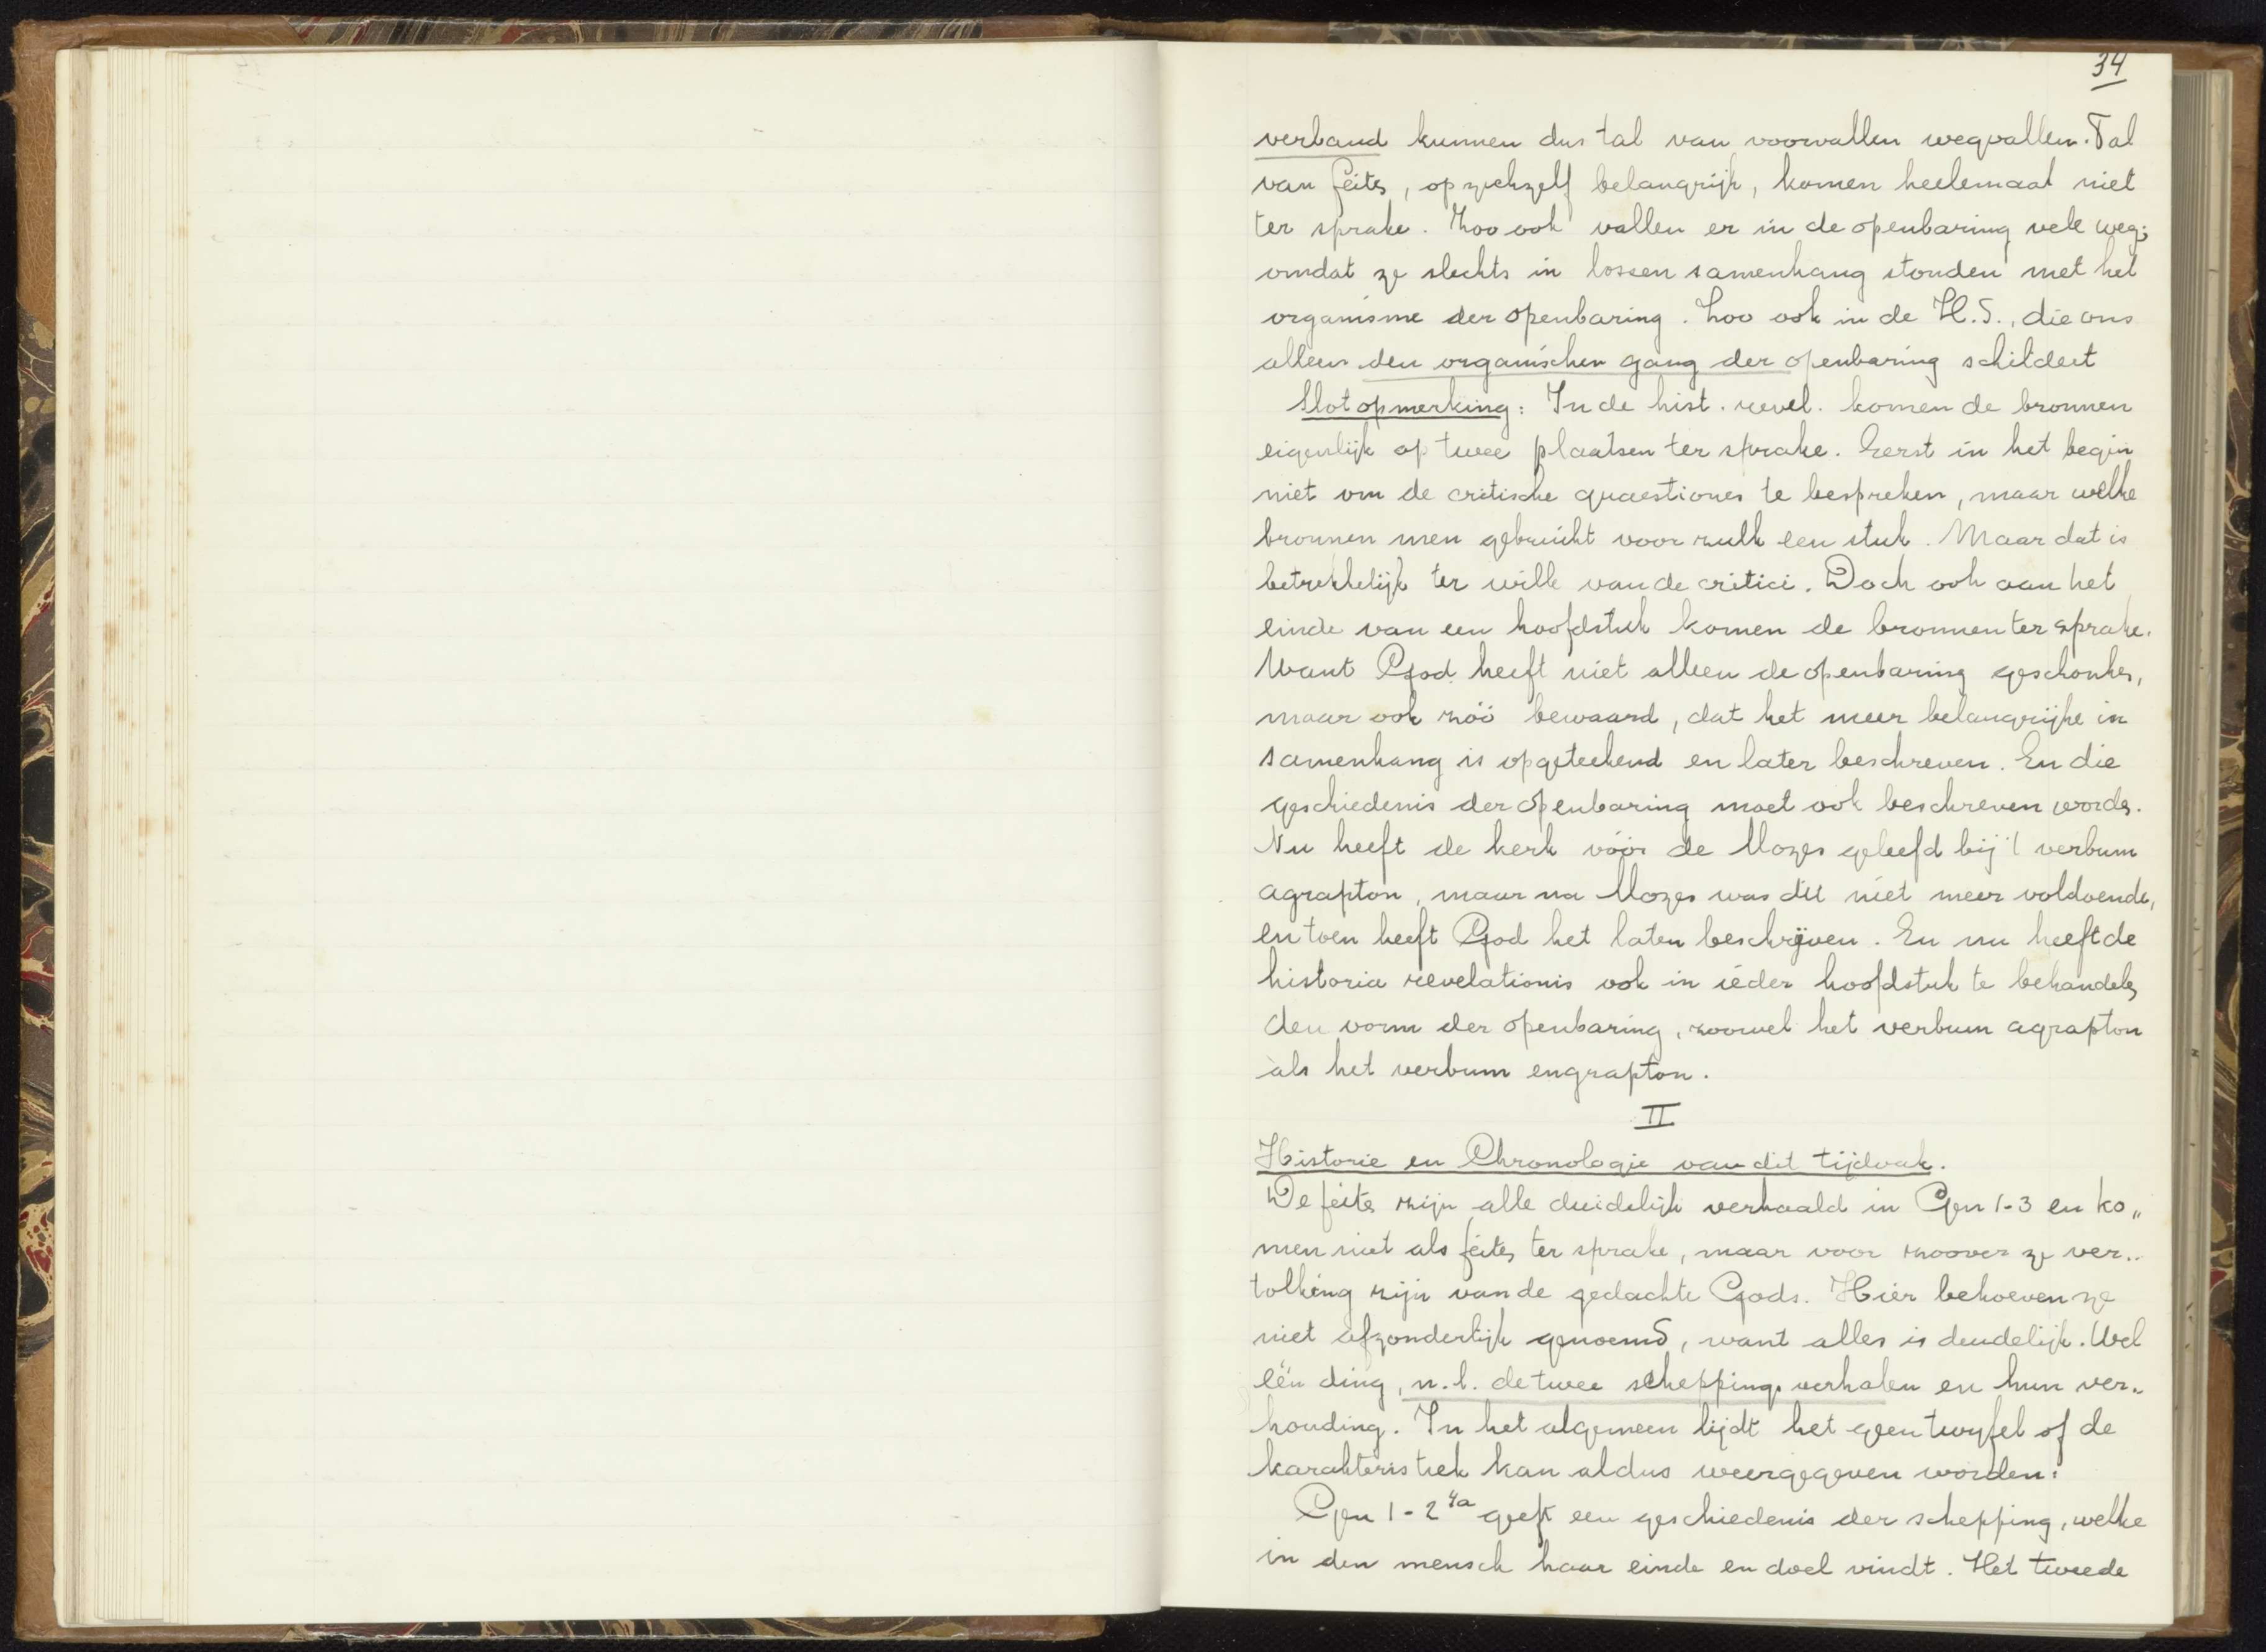 34
verband kunnen dus tal van voorvallen wegvallen. Tal
van feiten, op zichzelf belangrijk, komen heelemaal niet
ter sprake. Zoo ook vallen er in de openbaring vele weg,
omdat ze slechts in lossen samenhang stonden met het
organisme der openbaring. Zoo ook in de H.S., die ons
alleen den organischen gang der openbaring schildert
Slotopmerking: In de hist. revel. komen de bronnen
eigenlijk op twee plaatsen ter sprake. Eerst in het begin
niet om de critische quaestiones te bespreken, maar welke
bronnen men gebruikt voor zulk een stuk. Maar dat is
betrekkelijk ter wille van de critici. Doch ook aan het
einde van een hoofdstuk komen de bronnen ter sprake.
Want God heeft niet alleen de openbaring geschonken,
maar ook zóó bewaard, dat het meer belangrijke in
samenhang is opgeteekend en later beschreven. En die
geschiedenis der openbaring moet ook beschreven worden.
Nu heeft de kerk vóór de Mozes geleefd bij 't verbum
agrapton, maar na Mozes was dit niet meer voldoende,
en toen heeft God het laten beschrijven. En nu heeft de
historia revelationis ook in ieder hoofdstuk te behandelen
den vorm der openbaring, zoowel het verbum agrapton
als het verbum engrapton.
II
Historie en Chronologie van dit tijdvak.
De feiten zijn alle duidelijk verhaald in Gen 1-3 en ko„
men niet als feiten ter sprake, maar voor zoover ze ver„
tolking zijn van de gedachte Gods. Hier behoeven ze
niet afzonderlijk genoemd, want alles is duidelijk. Wel
één ding, n.l. de twee scheppingsverhalen en hun ver„
houding. In het algemeen lijdt het geen twyfel of de
karakteristiek kan aldus weergegeven worden:
Gen 1-2 4a geeft een geschiedenis der schepping, welke
in den mensch haar einde en doel vindt. Het tweede